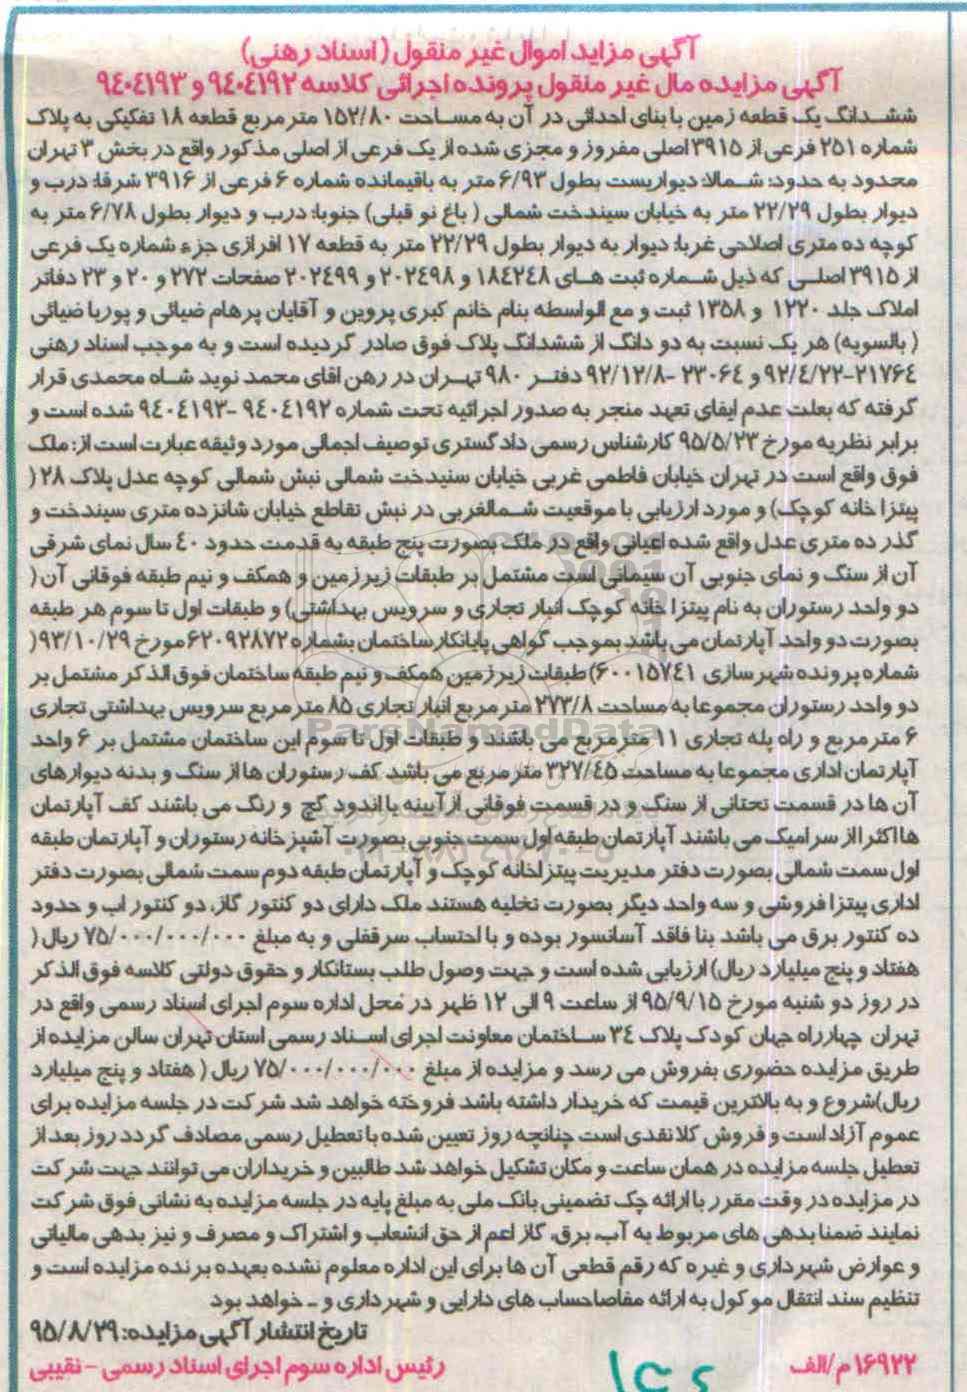 آگهی مزاید اموال غیر منقول (اسناد رهنی)
آگهی مزایده مال غیر منقول پرونده اجرائی کلاسه ۹٤۰٤۱۹۲ و ۹٤۰٤۱۹۳
ششدانگ یک قطعه زمین با بنای احداثی در آن به مساحت ۱۵۲/۸۰ متر مربع قطعه ۱۸ تفکیکی به پلاک
شماره ۲۵۱ فرعی از ۳۹۱۵ اصلی مفروز و مجزی شده از یک فرعی از اصلی مذکور واقع در بخش ۳ تهران
محدود به حدود: شمالا: دیواریست بطول ۶/۹۳ متر به باقیمانده شماره ۶ فرعی از ۳۹۱۶ شرقا: درب و
دیوار بطول ۲۲/۲۹ متر به خیابان سیندخت شمالی ( باغ نو قبلی) جنوبا: درب و دیوار بطول ۶/۷۸ متر به
کوچه ده متری اصلاحی غربا: دیوار به دیوار بطول ۲۲/۲۹ متر به قطعه ۱۷ افرازی جزء شماره یک فرعی
از ۳۹۱۵ اصلی که ذیل شماره ثبت های ۱۸٤۲٤۸ و ۲۰۲٤۹۸ و ۲۰۲٤۹۹ صفحات ۲۷۲ و ۲۰ و ۲۳ دفاتر
املاک جلد ۱۲۲۰ و ۱۳۵۸ ثبت و مع الواسطه بنام خانم کبری پروین و آقایان پرهام ضیائی و پوریا ضیائی
( بالسویه) هر یک نسبت به دو دانگ از ششدانگ پلاک فوق صادر گردیده است و به موجب اسناد رهنی
۲۱۷۶٤-۹۲/٤/۲۲ و ۲۳۰۶٤ -۹۲/۱۲/۸ دفتر ۹۸۰ تهران در رهن اقای محمد نوید شاه محمدی قرار
گرفته که بعلت عدم ایفای تعهد منجر به صدور اجرائیه تحت شماره ۹٤۰٤۱۹۲ -۹٤۰٤۱۹۳ شده است و
برابر نظریه مورخ ۹۵/۵/۲۳ کارشناس رسمی دادگستری توصیف اجمالی مورد وثیقه عبارت است از: ملک
فوق واقع است در تهران خیابان فاطمی غربی خیابان سنیدخت شمالی نبش شمالی کوچه عدل پلاک ۲۸ (
پیتزا خانه کوچک) و مورد ارزیابی با موقعیت شمالغربی در نبش تقاطع خیابان شانزده متری سیندخت و
گذر ده متری عدل واقع شده اعیانی واقع در ملک بصورت پنج طبقه به قدمت حدود ٤۰ سال نمای شرقی
آن از سنگ و نمای جنوبی آن سیمانی است مشتمل بر طبقات زیرزمین و همکف و نیم طبقه فوقانی آن (
دو واحد رستوران به نام پیتزا خانه کوچک انبار تجاری و سرویس بهداشتی) و طبقات اول تا سوم هر طبقه
بصورت دو واحد آپارتمان می باشد بموجب گواهی پایانکار ساختمان بشماره ۶۲۰۹۲۸۷۲ مورخ ۹۳/۱۰/۲۹ (
شماره پرونده شهرسازی ۶۰۰۱۵۷٤۱) طبقات زیرزمین همکف و نیم طبقه ساختمان فوق الذکر مشتمل بر
دو واحد رستوران مجموعا به مساحت ۲۷۳/۸ متر مربع انبار تجاری ۸۵ متر مربع سرویس بهداشتی تجاری
۶ متر مربع و راه پله تجاری ۱۱ متر مربع می باشند و طبقات اول تا سوم این ساختمان مشتمل بر ۶ واحد
آپارتمان اداری مجموعا به مساحت ۳۲۷/٤۵ متر مربع می باشد کف رستوران ها از سنگ و بدنه دیوارهای
آن ها در قسمت تحتانی از سنگ و در قسمت فوقانی از آیینه یا اندود گچ و رنگ می باشند کف آپارتمان
ها اکثرا از سرامیک می باشند آپارتمان طبقه اول سمت جنوبی بصورت آشپزخانه رستوران و آپارتمان طبقه
اول سمت شمالی بصورت دفتر مدیریت پیتزاخانه کوچک و آپارتمان طبقه دوم سمت شمالی بصورت دفتر
اداری پیتزا فروشی و سه واحد دیگر بصورت تخلیه هستند ملک دارای دو کنتور گاز، دو کنتور اب و حدود
ده کنتور برق می باشد بنا فاقد آسانسور بوده و با احتساب سرقفلی و به مبلغ ۷۵/۰۰۰/۰۰۰/۰۰۰ ریال (
هفتاد و پنج میلیارد ریال) ارزیابی شده است و جهت وصول طلب بستانکار و حقوق دولتی کلاسه فوق الذکر
در روز دو شنبه مورخ ۹۵/۹/۱۵ از ساعت ۹ الی ۱۲ ظهر در محل اداره سوم اجرای اسناد رسمی واقع در
تهران چهارراه جهان کودک پلاک ۳٤ ساختمان معاونت اجرای اسناد رسمی استان تهران سالن مزایده از
طریق مزایده حضوری بفروش می رسد و مزایده از مبلغ ۷۵/۰۰۰/۰۰۰/۰۰۰ ریال ( هفتاد و پنج میلیارد
ریال) شروع و به بالاترین قیمت که خریدار داشته باشد فروخته خواهد شد شرکت در جلسه مزایده برای
عموم آزاد است و فروش کلا نقدی است چنانچه روز تعیین شده با تعطیل رسمی مصادف گردد روز بعد از
تعطیل جلسه مزایده در همان ساعت و مکان تشکیل خواهد شد طالبین و خریداران می توانند جهت شرکت
در مزایده در وقت مقرر با ارائه چک تضمینی بانک ملی به مبلغ پایه در جلسه مزایده به نشانی فوق شرکت
نمایند ضمنا بدهی های مربوط به آب، برق، گاز اعم از حق انشعاب و اشتراک و مصرف و نیز بدهی مالیاتی
و عوارض شهرداری و غیره که رقم قطعی آن ها برای این اداره معلوم نشده بعهده برنده مزایده است و
تنظیم سند انتقال موکول به ارائه مفاصاحساب های دارایی و شهرداری و ... خواهد بود
تاریخ انتشار آگهی مزایده: ۹۵/۸/۲۹
۱۶۹۲۲ م/الف رئیس اداره سوم اجرای اسناد رسمی - نقیبی
ParsNamadData